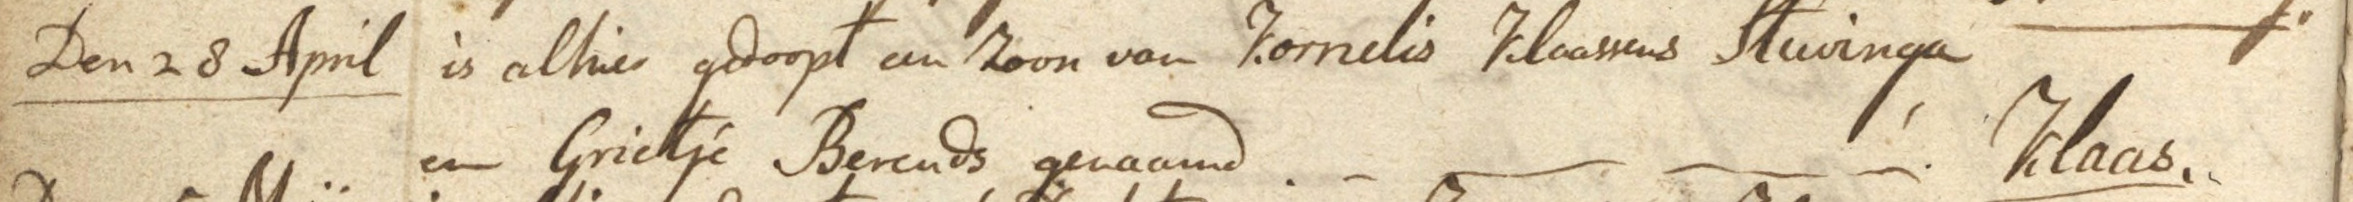 Den 28 April is alhier gedoopt een Zoon van Kornelis Klaassens Stuvinga
en Grietje Berends genaamd . - — — - . Klaas.